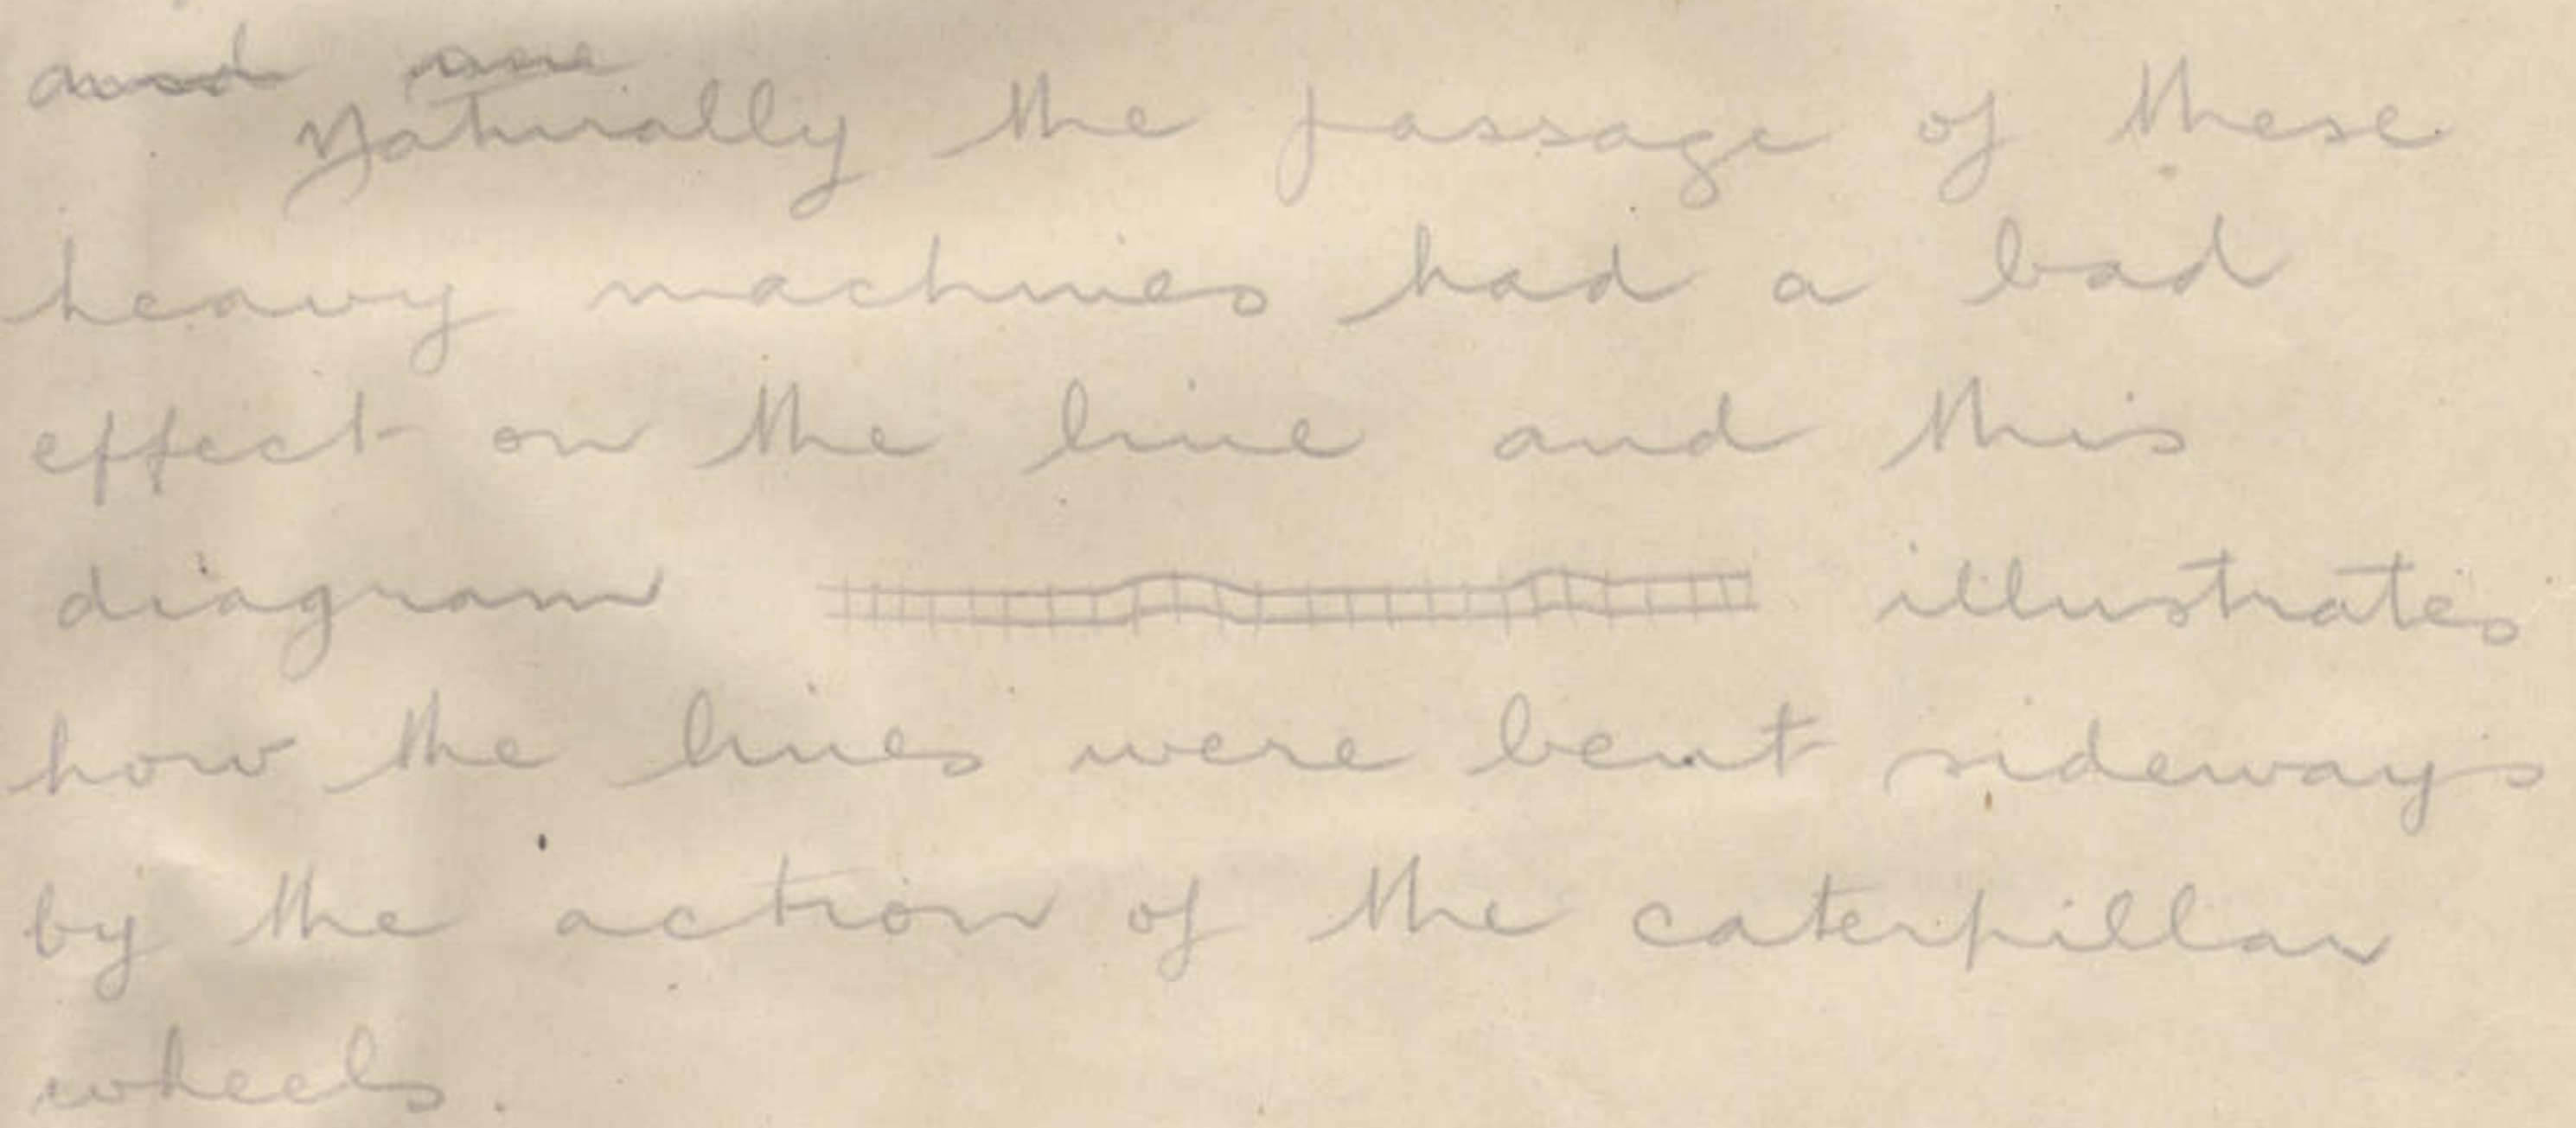 and
Naturally the passage of these
heavy machines had a bad
effect on the line and this
diagram illustrates
how the lines were bent sideways
by the action of the caterpillar
wheels.